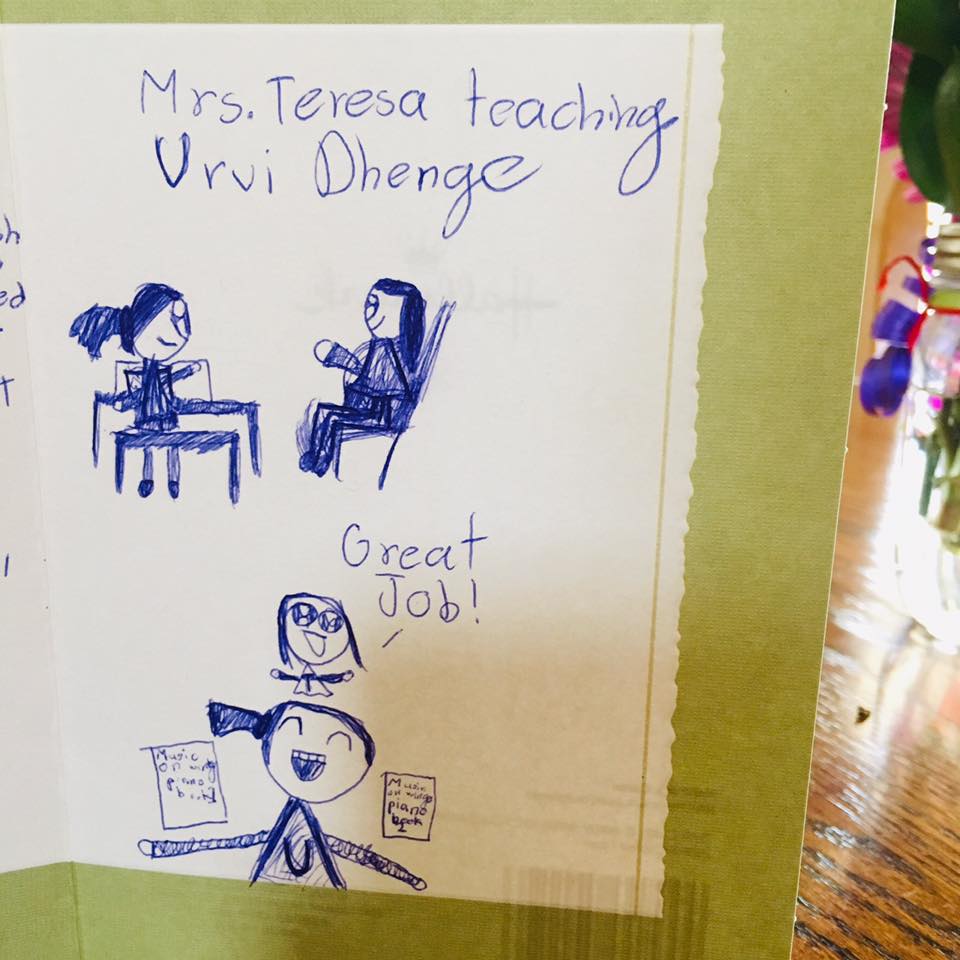 Mrs. Teresa teaching
Urvi Dhenge
Great
Job!
Music
on wings
piano
book
Music
on wings
piano
book
1